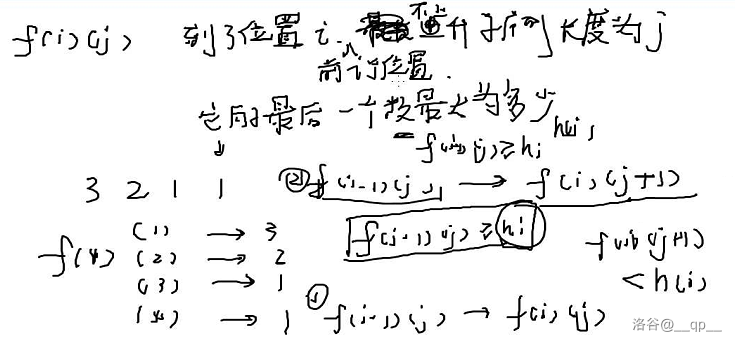 f(i)(j) 到了位置 i. 不上升子序列长度为 j
前 i 个位置.
它的最后一个数最大为多少
f(i-1)(j) ≥ hi
3 2 1 1 ② f(i-1)(j) → f(i)(j+1)
(1) → 3 f(i-1)(j) ≥ hi
f(4) (2) → 2 f(i)(j+1)
(3) → 1 < h(i)
(4) → 1 ① f(i-1)(j) → f(i)(j)
洛谷@__qp__